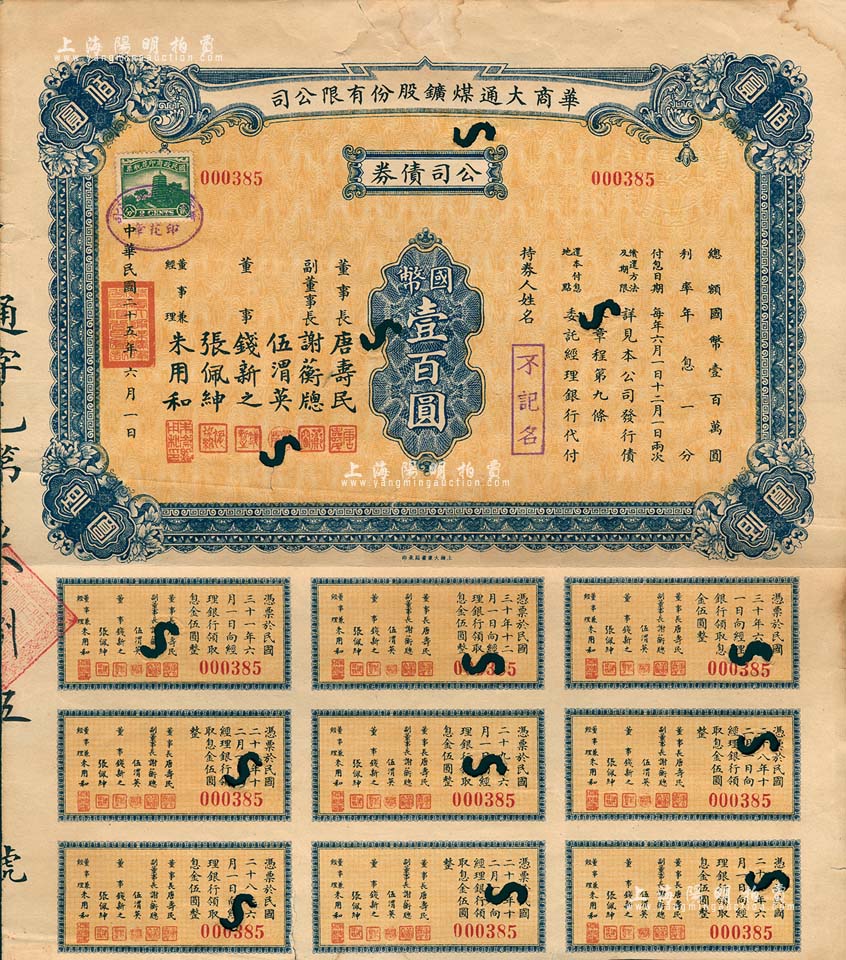 上海陽明拍賣
www.yangmingauction.com
華商大通煤鑛股份有限公司
佰圓
佰圓
000385
公司債券
000385
國民政府印花稅票
2 CENTS
總額國幣壹百萬圓
利率年息一分
付息日期 每年六月一日十二月一日兩次
償還方法及期限 詳見本公司發行債
章程第九條
還本付息地點 委託經理銀行代付
持券人姓名
不記名
國幣
壹百圓
董事長唐壽民
副董事長謝蘅牕
伍渭英
董事錢新之
張佩紳
董事兼經理朱用和
中華民國二十五年六月一日
上海陽明拍賣
www.yangmingauction.com
上海大業書局承印
憑票於民國
三十年六
一日向經理
銀行領取息
金伍圓整
董事長唐壽民
副董事長謝蘅牕
伍渭英
董事錢新之
張佩紳
董事兼經理朱用和
000385
憑票於民國
三十年十二
月一日向經
理銀行領取
息金伍圓整
董事長唐壽民
副董事長謝蘅牕
伍渭英
董事錢新之
張佩紳
董事兼經理朱用和
000385
憑票於民國
三十一年六
月一日向經
理銀行領取
息金伍圓整
董事長唐壽民
副董事長謝蘅牕
伍渭英
董事錢新之
張佩紳
董事兼經理朱用和
000385
憑票於民國
二十八年十
二月一日向
經理銀行領
取息金伍圓
整
董事長唐壽民
副董事長謝蘅牕
伍渭英
董事錢新之
張佩紳
董事兼經理朱用和
000385
憑票於民國
二十九年六
月一日向經
理銀行領取
息金伍圓整
董事長唐壽民
副董事長謝蘅牕
伍渭英
董事錢新之
張佩紳
董事兼經理朱用和
000385
憑票於民國
二十九年十
二月一日向
經理銀行領
取息金伍圓
整
董事長唐壽民
副董事長謝蘅牕
伍渭英
董事錢新之
張佩紳
董事兼經理朱用和
000385
憑票於民國
二十七年六
月一日向經
理銀行領取
息金伍圓整
董事長唐壽民
副董事長謝蘅牕
伍渭英
董事錢新之
張佩紳
董事兼經理朱用和
000385
憑票於民國
二十七年十
二月一日向
經理銀行領
取息金伍圓
整
董事長唐壽民
副董事長謝蘅牕
伍渭英
董事錢新之
張佩紳
董事兼經理朱用和
000385
憑票於民國
二十八年六
月一日向經
理銀行領取
息金伍圓整
董事長唐壽民
副董事長謝蘅牕
伍渭英
董事錢新之
張佩紳
董事兼經理朱用和
000385
上海陽明拍賣
www.yangmingauction.com